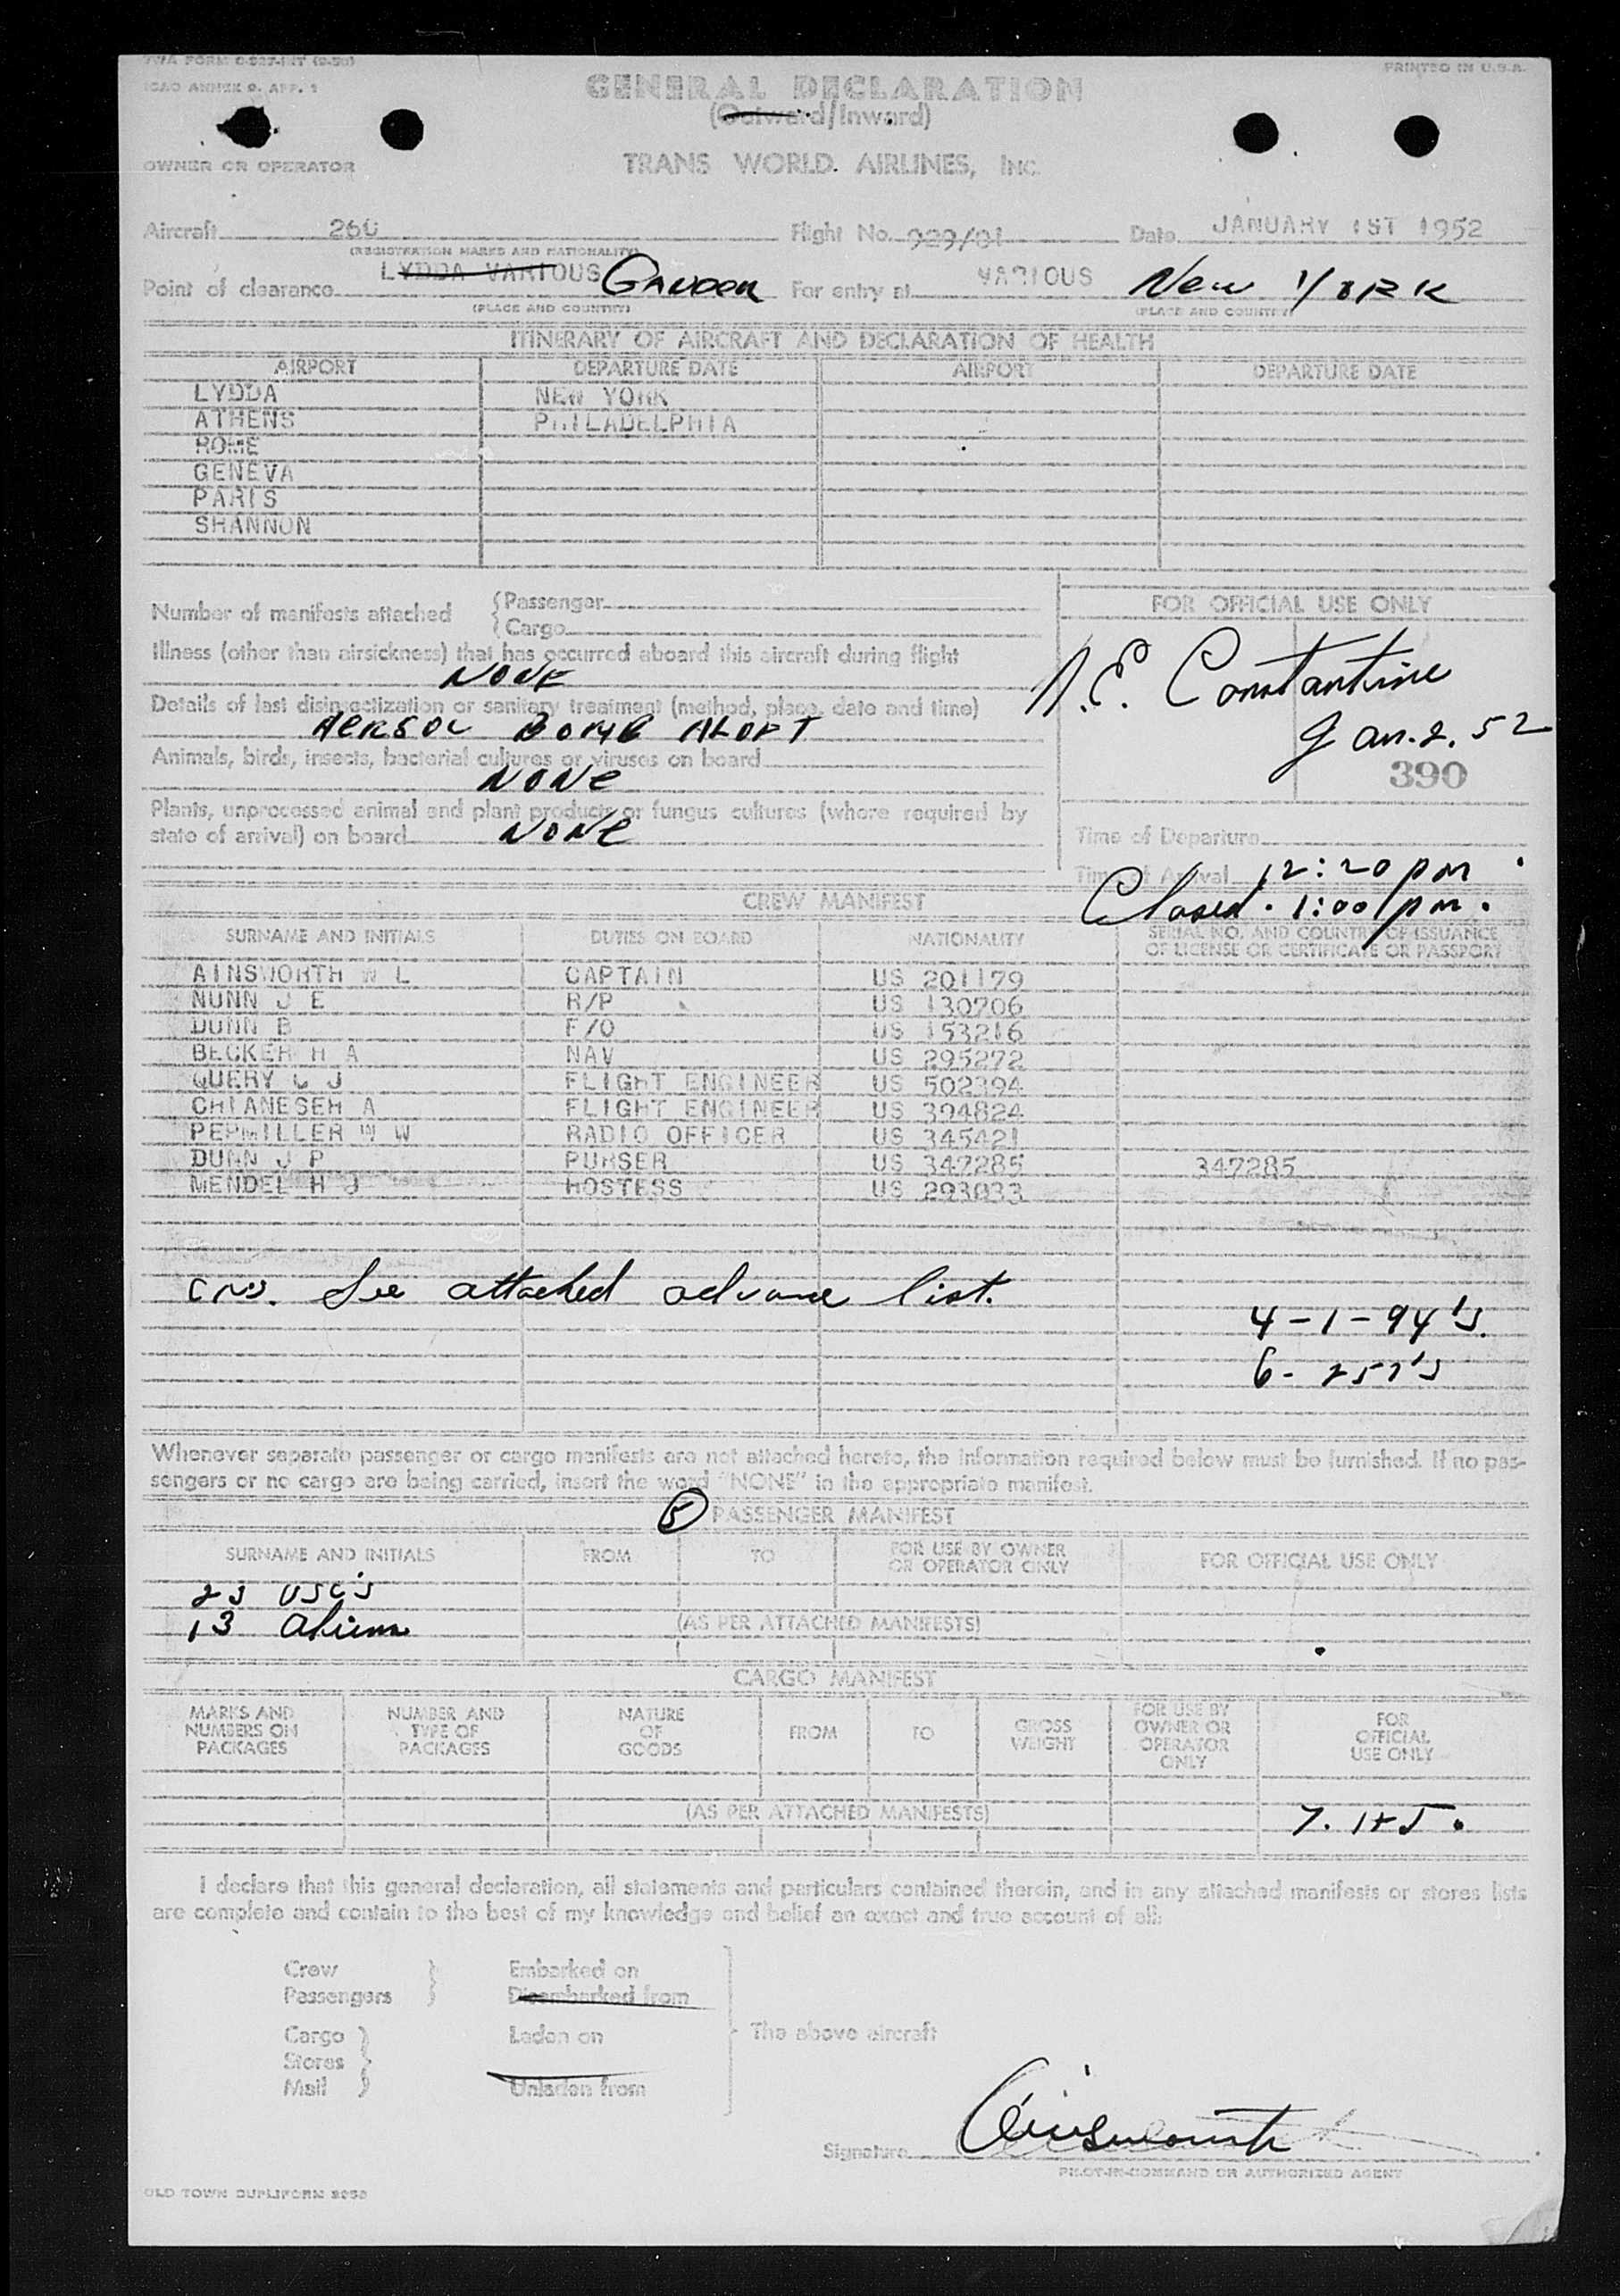 TWA FORM C-527-INT (9-50)
PRINTED IN U.S.A.
ICAO ANNEX 9. APP. 1
GENERAL DECLARATION
(Outward/Inward)
OWNER OR OPERATOR TRANS WORLD AIRLINES, INC.
Aircraft 260 Flight No. 929/01 Date JANUARY 1ST 1952
(REGISTRATION MARKS AND NATIONALITY)
Point of clearance LYDDA VARIOUS GANDER For entry at VARIOUS New York
(PLACE AND COUNTRY) (PLACE AND COUNTRY)
ITINERARY OF AIRCRAFT AND DECLARATION OF HEALTH
AIRPORT DEPARTURE DATE AIRPORT DEPARTURE DATE
LYDDA NEW YORK
ATHENS PHILADELPHIA
ROME
GENEVA
PARIS
SHANNON
Number of manifests attached {Passenger
{Cargo
FOR OFFICIAL USE ONLY
Illness (other than airsickness) that has occurred aboard this aircraft during flight
NONE
Details of last disinsectization or sanitary treatment (method, place, date and time)
AERSOL BOMB ALOFT
Animals, birds, insects, bacterial cultures or viruses on board
NONE
Plants, unprocessed animal and plant products or fungus cultures (where required by
state of arrival) on board NONE
N.E. Constantine
Jan. 2. 52
390
Time of Departure
Time of Arrival 12:20 pm
Closed. 1:00 pm.
CREW MANIFEST
SURNAME AND INITIALS DUTIES ON BOARD NATIONALITY SERIAL NO. AND COUNTRY OF ISSUANCE
OF LICENSE OR CERTIFICATE OR PASSPORT
AINSWORTH W L CAPTAIN US 201179
NUNN J E R/P US 130706
DUNN B F/O US 153216
BECKER H A NAV US 295272
QUERY L J FLIGHT ENGINEER US 502394
CHIANESEH A FLIGHT ENGINEER US 394824
PEPMILLER W W RADIO OFFICER US 345421
DUNN J P PURSER US 347285 347285
MENDEL H J HOSTESS US 293033
See attached advance list.
4-1-94's.
6- 257's
Whenever separate passenger or cargo manifests are not attached hereto, the information required below must be furnished. If no pas-
sengers or no cargo are being carried, insert the word "NONE" in the appropriate manifest.
5 PASSENGER MANIFEST
SURNAME AND INITIALS FROM TO FOR USE BY OWNER
OR OPERATOR ONLY FOR OFFICIAL USE ONLY
23 USC's
13 Aliens (AS PER ATTACHED MANIFESTS)
CARGO MANIFEST
MARKS AND
NUMBERS ON
PACKAGES
NUMBER AND
TYPE OF
PACKAGES
NATURE
OF
GOODS
FROM
TO
GROSS
WEIGHT
FOR USE BY
OWNER OR
OPERATOR
ONLY
FOR
OFFICIAL
USE ONLY
(AS PER ATTACHED MANIFESTS)
I declare that this general declaration, all statements and particulars contained therein, and in any attached manifests or stores lists
are complete and contain to the best of my knowledge and belief an exact and true account of all:
Crew } Embarked on
Passengers } Disembarked from
Cargo } Laden on The above aircraft
Stores }
Mail } Unladen from
Signature Ainsworth
PILOT-IN-COMMAND OR AUTHORIZED AGENT
OLD TOWN DUPLIFORM